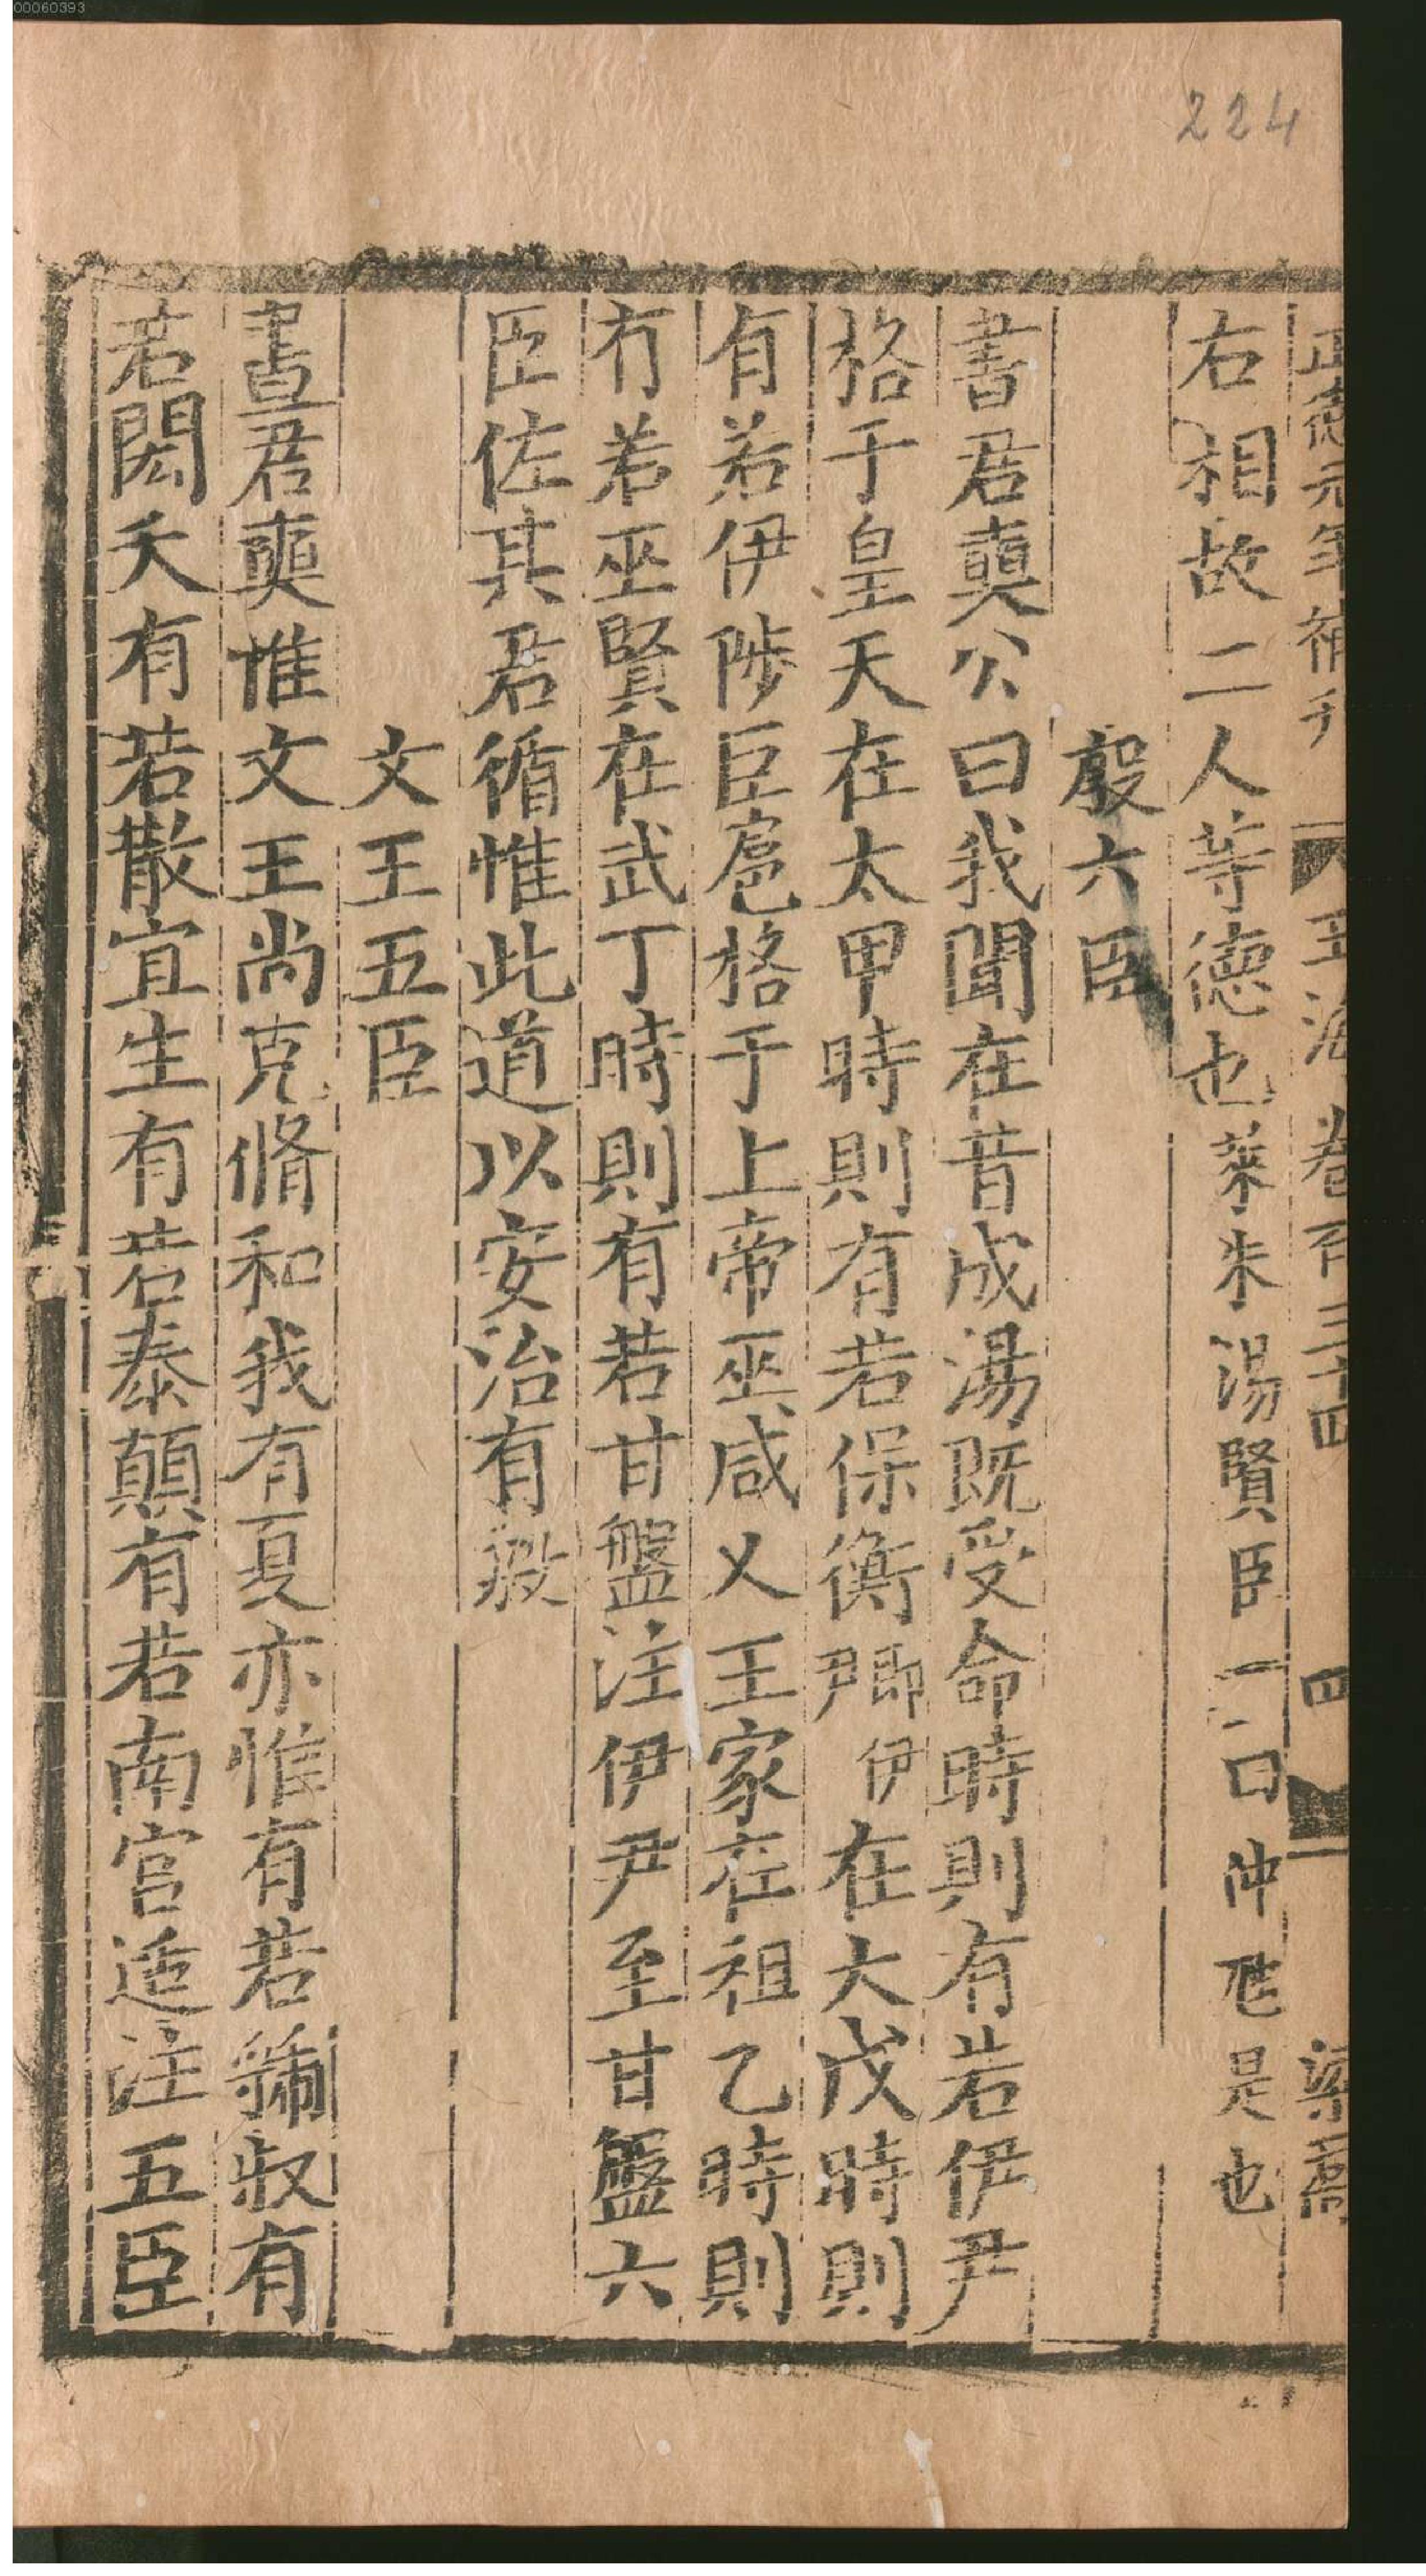 00060393
224
正德元年補刊 玉海卷百三十四 四
右相故二人等德也萊朱湯賢臣一曰仲虺是也
殷六臣
書君奭公曰我聞在昔成湯既受命時則有若伊尹
格于皇天在太甲時則有若保衡即伊尹在大戊時則
有若伊陟臣扈格于上帝巫咸乂王家在祖乙時則
有若巫賢在武丁時則有若甘盤注伊尹至甘盤六
臣佐其君循惟此道以安治有殷
文王五臣
書君奭惟文王尚克脩和我有夏亦惟有若虢叔有
若閎夭有若散宜生有若泰顛有若南宮适注五臣